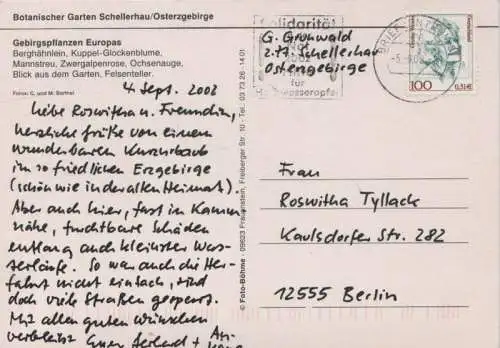 Botanischer Garten Schellerhau/Osterzgebirge
Gebirgspflanzen Europas
Berghähnlein, Kuppel-Glockenblume,
Mannstreu, Zwergalpenrose, Ochsenauge,
Blick aus dem Garten, Felsenteller.
Fotos: C. und M. Barthel
4. Sept. 2002
Liebe Roswitha u. Freundin,
herzliche Grüße von einem
wunderbaren Kurzurlaub
im so friedlichen Erzgebirge
(schön wie in der alten Heimat).
Aber auch hier, fast in Kamm
nähe, furchtbare Schäden
entlang auch kleinster Was-
serläufe. So war auch die Her-
fahrt nicht einfach, sind
doch viele Straßen gesperrt.
Mit allen guten Wünschen
verbleibt Euer Gerhard +
© Foto-Böhme · 09623 Frauenstein, Freiberger Str. 10 · Tel. 03 73 26 - 14 01
Solidarität
für
G. Grunwald
z.Zt. Schellerhau
Osterzgebirge
BRIEFZENTRUM
100 0,51€
Frau
Roswitha Tyllack
Kaulsdorfer Str. 282
12555 Berlin